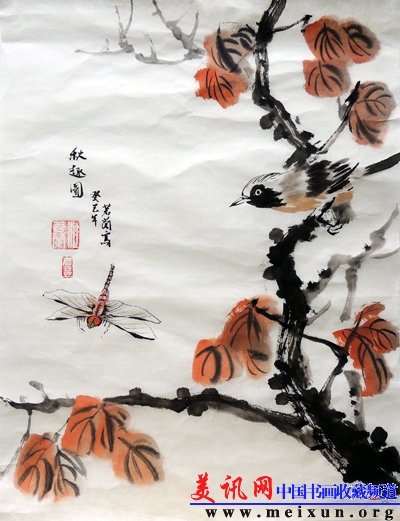 秋趣圖
癸巳年
茗蘭寫
美讯网 中国书画收藏频道
www.meixun.org